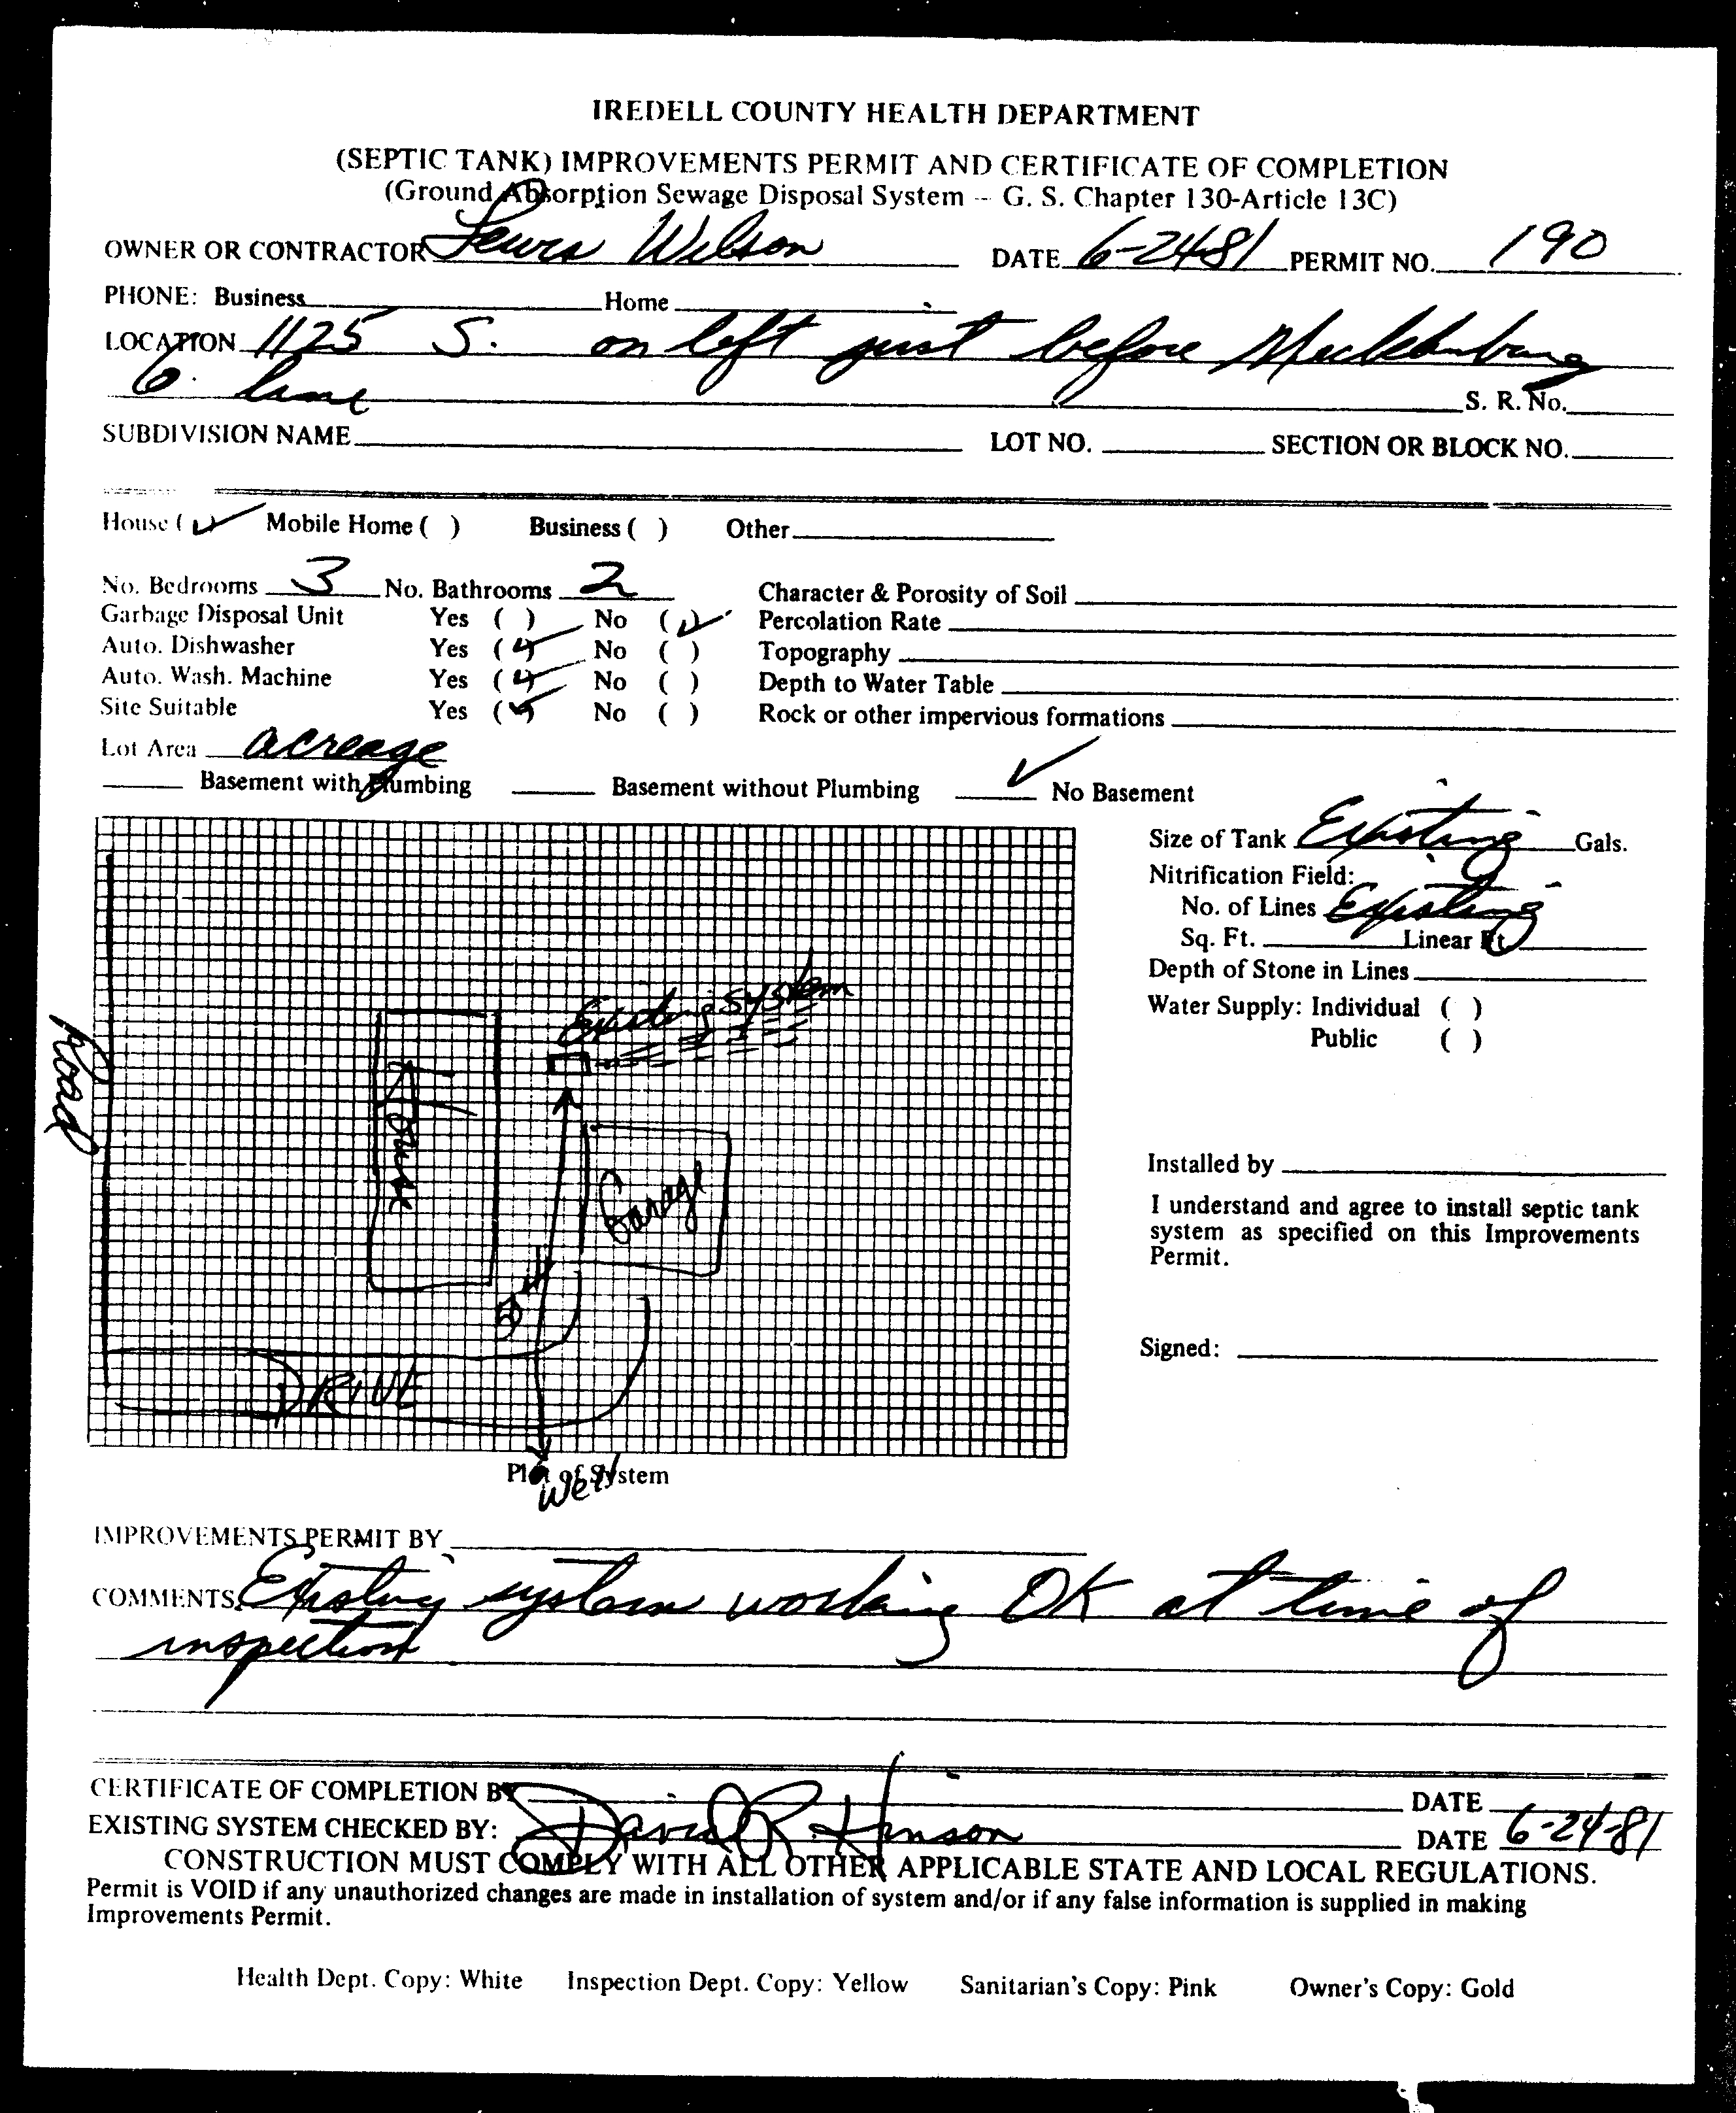 IREDELL COUNTY HEALTH DEPARTMENT
(SEPTIC TANK) IMPROVEMENTS PERMIT AND CERTIFICATE OF COMPLETION
(Ground Absorption Sewage Disposal System -- G. S. Chapter 130-Article 13C)
OWNER OR CONTRACTOR Lewis Wilson DATE 6-24-81 PERMIT NO. 190
PHONE: Business Home
LOCATION 1125 S. on left just before Mecklenburg
Co. line S. R. No.
SUBDIVISION NAME LOT NO. SECTION OR BLOCK NO.
House (✓) Mobile Home ( ) Business ( ) Other
No. Bedrooms 3 No. Bathrooms 2 Character & Porosity of Soil
Garbage Disposal Unit Yes ( ) No (✓) Percolation Rate
Auto. Dishwasher Yes (✓) No ( ) Topography
Auto. Wash. Machine Yes (✓) No ( ) Depth to Water Table
Site Suitable Yes (✓) No ( ) Rock or other impervious formations
Lot Area acreage
Basement with Plumbing Basement without Plumbing ✓ No Basement
Size of Tank Existing Gals.
Nitrification Field:
No. of Lines Existing
Sq. Ft. Linear Ft
Depth of Stone in Lines
Water Supply: Individual ( )
Public ( )
Installed by
I understand and agree to install septic tank
system as specified on this Improvements
Permit.
Signed:
Road
Existing system
House
Garage
DRIVE
Plot of System
Well
IMPROVEMENTS PERMIT BY
COMMENTS: Existing system working OK at time of
inspection
CERTIFICATE OF COMPLETION BY DATE
EXISTING SYSTEM CHECKED BY: David R. Hinson DATE 6-24-81
CONSTRUCTION MUST COMPLY WITH ALL OTHER APPLICABLE STATE AND LOCAL REGULATIONS.
Permit is VOID if any unauthorized changes are made in installation of system and/or if any false information is supplied in making
Improvements Permit.
Health Dept. Copy: White Inspection Dept. Copy: Yellow Sanitarian's Copy: Pink Owner's Copy: Gold